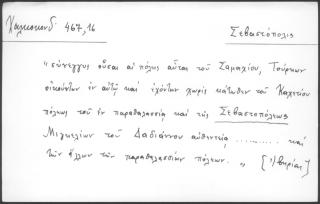 Χαλκοκονδ. 467,16
Σεβαστόπολις
"σύνεγγυς οὖσαι αἱ πόλεις αὗται τοῦ Σαμαχίου, Τούρκων
οἰκούντων ἐν αὐτῷ καὶ ἐχόντων χωρὶς κάτωθεν τοῦ Καχετίου
πόλεως τοῦ ἐν παραθαλασσίᾳ καὶ τῆς Σεβαστοπόλεως
Μιγκελίων τοῦ Δαδιάνου αὐθεντία .......... καὶ
τῶν ἄλλων τῶν παραθαλασσίων πόλεων. " [Ἰβηρίας]